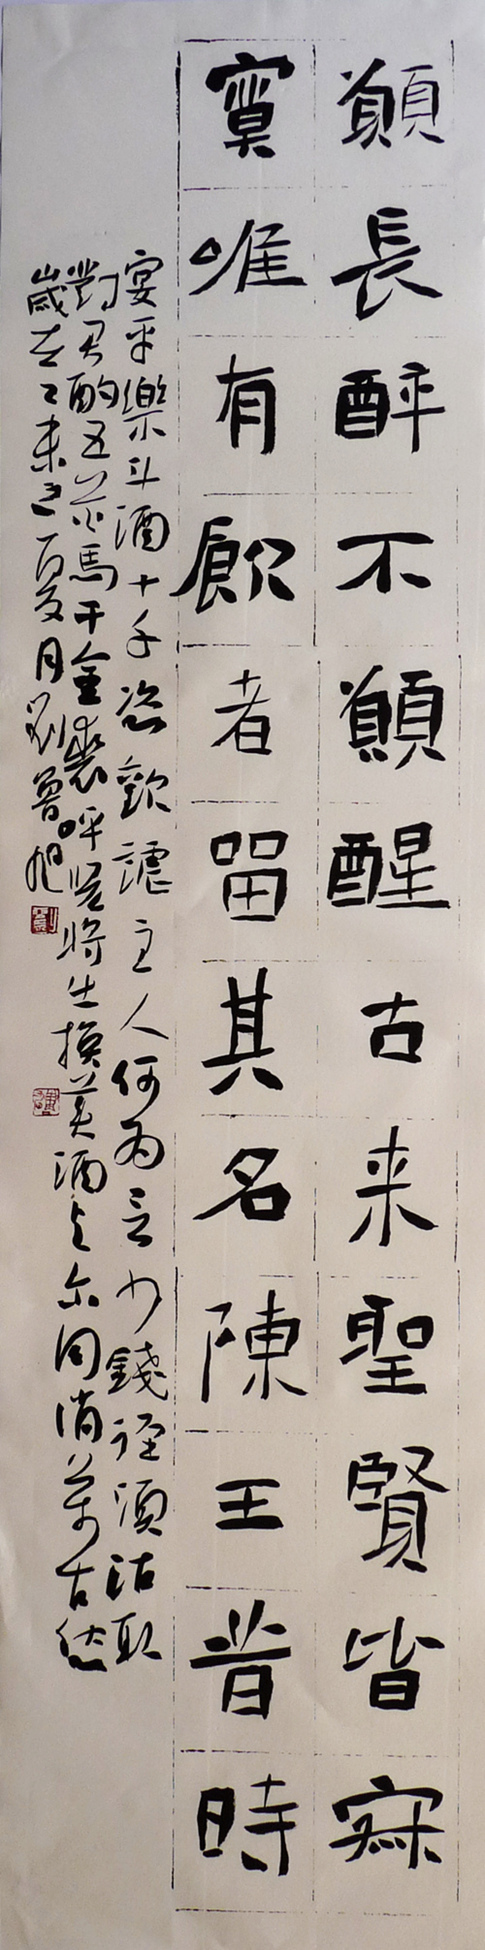 願長醉不願醒古来聖賢皆寂
寞唯有飲者留其名陳王昔時
宴平樂斗酒十千恣歡謔主人何為言少錢徑須沽取
對君酌五花馬千金裘呼児將出換美酒与尔同消萬古愁
歲在乙未之夏月劉魯旭